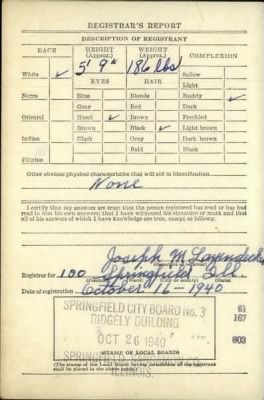 REGISTRAR'S REPORT
DESCRIPTION OF REGISTRANT
RACE HEIGHT (Approx.) WEIGHT (Approx.) COMPLEXION
5' 9" 186 lbs
White ✓ Sallow
EYES HAIR Light
Negro Blue Blonde Ruddy ✓
Gray Red Dark
Oriental Hazel ✓ Brown Freckled
Brown Black ✓ Light brown
Indian Black Gray Dark brown
Bald Black
Filipino
Other obvious physical characteristics that will aid in identification
None
I certify that my answers are true; that the person registered has read or has had
read to him his own answers; that I have witnessed his signature or mark and that
all of his answers of which I have knowledge are true, except as follows:
Joseph M
Registrar for 100 Springfield Ill.
Date of registration October 16 - 1940
SPRINGFIELD CITY BOARD No. 3
RIDGELY BUILDING
OCT 26 1940
61
167
803
(STAMP OF LOCAL BOARD)
SPRINGFIELD
ILLINOIS
(The stamp of the Local Board having jurisdiction of the registrant
shall be placed in the above space.)